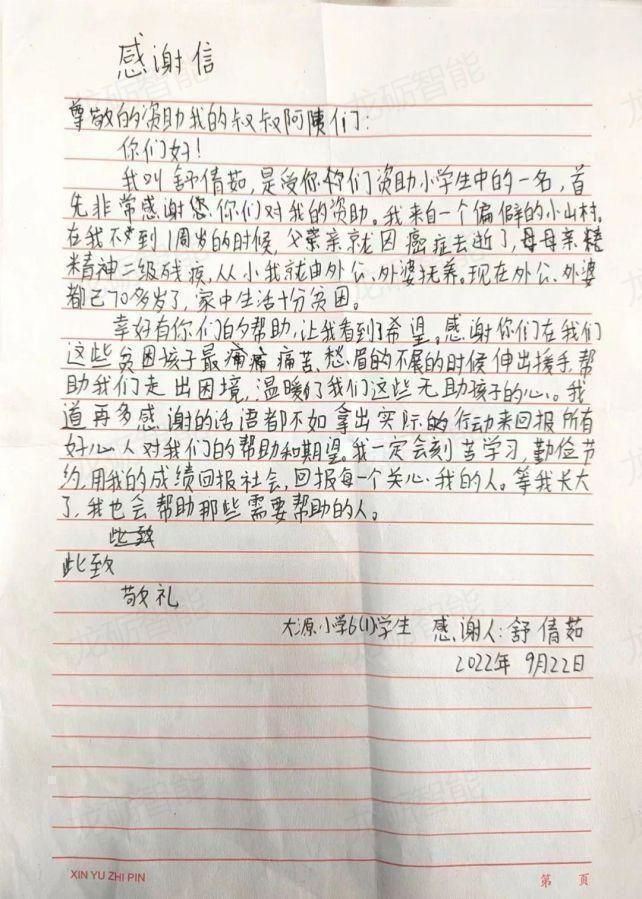 感谢信
尊敬的资助我的叔叔阿姨们：
你们好！
我叫舒倩茹，是受你们资助小学生中的一名，首
先非常感谢您你们对我的资助。我来自一个偏僻的小山村。
在我不到1周岁的时候，父亲就因癌症去逝了，母母亲精
精神二级残疾，从小我就由外公、外婆抚养。现在外公、外婆
都已70多岁了，家中生活十分贫困。
幸好有你们的帮助，让我看到了希望。感谢你们在我们
这些贫困孩子最痛痛痛苦、愁眉的不展的时候伸出援手，帮
助我们走出困境，温暖了我们这些无助孩子的心。我
道再多感谢的话语都不如拿出实际的行动来回报所有
好心人对我们的帮助和期望。我一定会刻苦学习，勤俭节
约，用我的成绩回报社会，回报每一个关心我的人。等我长大
了，我也会帮助那些需要帮助的人。
此致
此致
敬礼
大源小学6(1)学生 感谢人：舒倩茹
2022年 9月22日
XIN YU ZHI PIN 第 页
龙砺智能